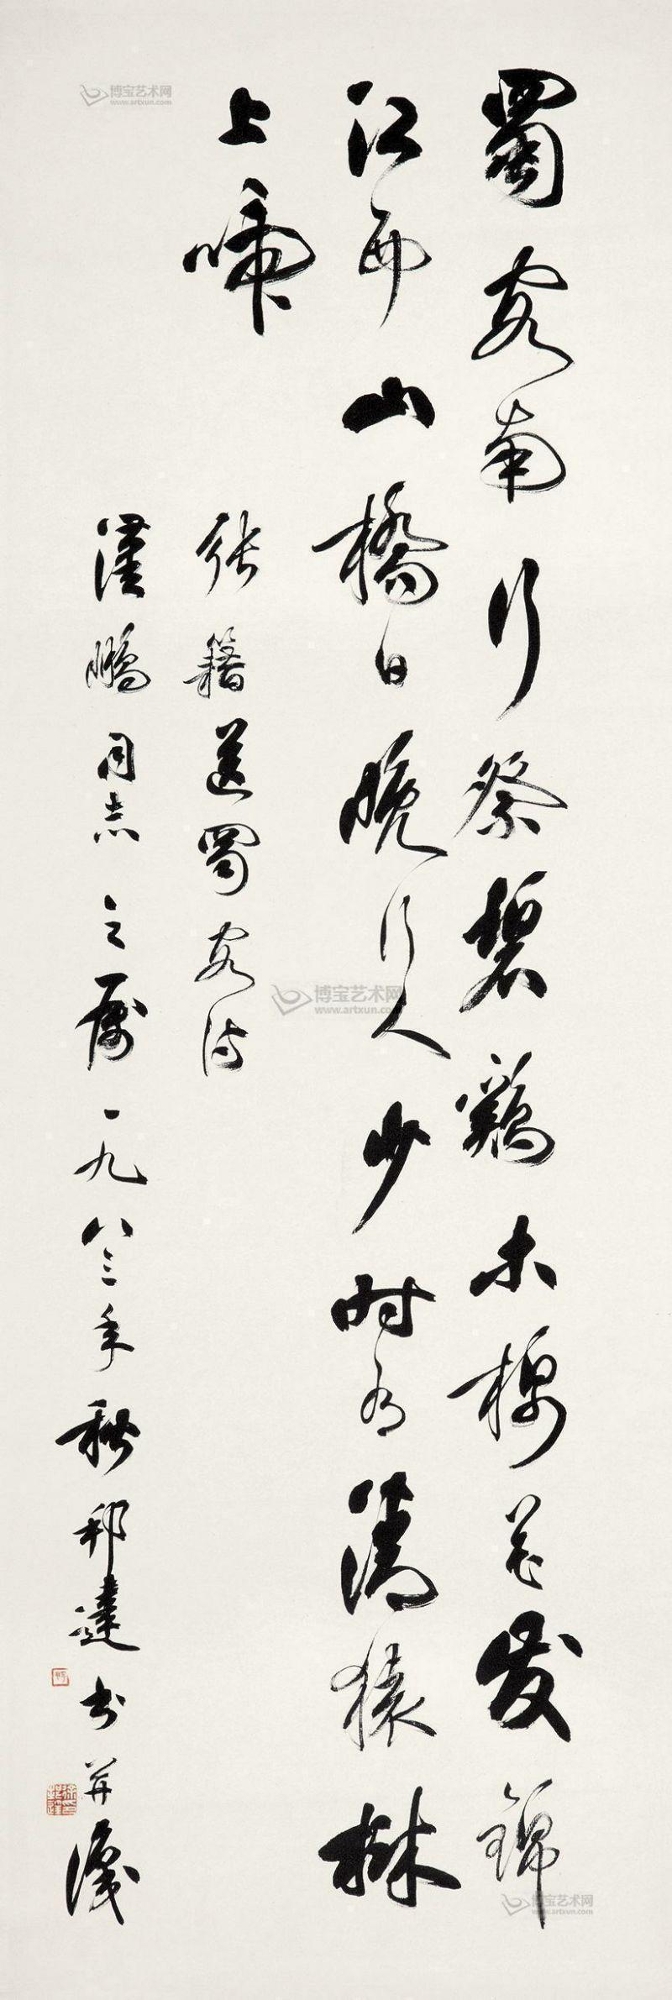 蜀客南行祭碧鷄木棉花发錦
江西山橋日晚行人少时有清猿樹
上啼
張籍送蜀客诗
漢鵬同志之属一九八三年秋邦達书并識
博宝艺术网
www.artxun.com
博宝艺术网
www.artxun.com
博宝艺术网
www.artxun.com